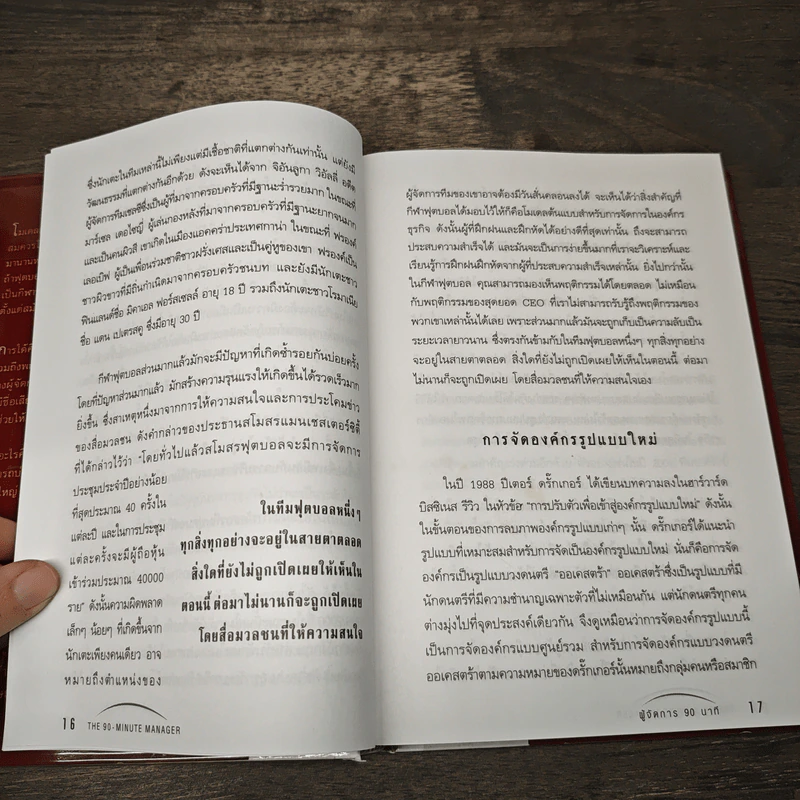 ซึ่งนักเตะในทีมเหล่านี้ไม่เพียงแต่มีเชื้อชาติที่แตกต่างกันเท่านั้น แต่ยังมี
วัฒนธรรมที่แตกต่างกันอีกด้วย ดังจะเห็นได้จาก จิอันลูกา วิอัลลี่ อดีต
ผู้จัดการทีมเชลซีซึ่งเป็นผู้ที่มาจากครอบครัวที่มีฐานะร่ำรวยมาก ในขณะที่
มาร์เซล เดอไซญี่ ผู้เล่นกองหลังที่มาจากครอบครัวที่มีฐานะยากจนมาก
และเป็นคนผิวสี เขาเกิดในเมืองแอคคร่าประเทศกาน่า ในขณะที่ ฟรองค์
เลอเบิฟ ผู้เป็นเพื่อนร่วมชาติชาวฝรั่งเศสและเป็นคู่หูของเขา ฟรองค์เป็น
ชาวผิวขาวที่มีถิ่นกำเนิดมาจากครอบครัวชนบท และยังมีนักเตะชาว
ฟินแลนด์ชื่อ มิคาเอล ฟอร์สเซลล์ อายุ 18 ปี รวมถึงนักเตะชาวโรมาเนีย
ชื่อ แดน เปเตรสคู ซึ่งมีอายุ 30 ปี
กีฬาฟุตบอลส่วนมากแล้วมักจะมีปัญหาที่เกิดซ้ำรอยกันบ่อยครั้ง
โดยที่ปัญหาส่วนมากแล้ว มักสร้างความรุนแรงให้เกิดขึ้นได้รวดเร็วมาก
ยิ่งขึ้น ซึ่งสาเหตุหนึ่งมาจากการให้ความสนใจและการประโคมข่าว
ของสื่อมวลชน ดังคำกล่าวของประธานสโมสรแมนเชสเตอร์ซิตี้
ที่ได้กล่าวไว้ว่า “โดยทั่วไปแล้วสโมสรฟุตบอลจะมีการจัดการ
ประชุมประจำปีอย่างน้อย
ที่สุดประมาณ 40 ครั้งใน
แต่ละปี และในการประชุม
แต่ละครั้งจะมีผู้ถือหุ้น
เข้าร่วมประมาณ 40000
ราย” ดังนั้นความผิดพลาด
เล็กๆ น้อยๆ ที่เกิดขึ้นจาก
นักเตะเพียงคนเดียว อาจ
หมายถึงตำแหน่งของ
ในทีมฟุตบอลหนึ่งๆ
ทุกสิ่งทุกอย่างจะอยู่ในสายตาตลอด
สิ่งใดที่ยังไม่ถูกเปิดเผยให้เห็นใน
ตอนนี้ ต่อมาไม่นานก็จะถูกเปิดเผย
โดยสื่อมวลชนที่ให้ความสนใจ
16 THE 90-MINUTE MANAGER
ผู้จัดการทีมของเขาอาจต้องมีวันสั่นคลอนลงได้ จะเห็นได้ว่าสิ่งสำคัญที่
กีฬาฟุตบอลได้มอบไว้ให้ก็คือโมเดลต้นแบบสำหรับการจัดการในองค์กร
ธุรกิจ ดังนั้นผู้ที่ฝึกฝนและฝึกหัดได้อย่างดีที่สุดเท่านั้น ถึงจะสามารถ
ประสบความสำเร็จได้ และมันจะเป็นการง่ายขึ้นมากที่เราจะวิเคราะห์และ
เรียนรู้การฝึกฝนฝึกหัดจากผู้ที่ประสบความสำเร็จเหล่านั้น ยิ่งไปกว่านั้น
ในกีฬาฟุตบอล คุณสามารถมองเห็นพฤติกรรมได้โดยตลอด ไม่เหมือน
กับพฤติกรรมของสุดยอด CEO ที่เราไม่สามารถรับรู้ถึงพฤติกรรมของ
พวกเขาเหล่านั้นได้เลย เพราะส่วนมากแล้วมันจะถูกเก็บเป็นความลับเป็น
ระยะเวลายาวนาน ซึ่งตรงกันข้ามกับในทีมฟุตบอลหนึ่งๆ ทุกสิ่งทุกอย่าง
จะอยู่ในสายตาตลอด สิ่งใดที่ยังไม่ถูกเปิดเผยให้เห็นในตอนนี้ ต่อมา
ไม่นานก็จะถูกเปิดเผย โดยสื่อมวลชนที่ให้ความสนใจเอง
การจัดองค์กรรูปแบบใหม่
ในปี 1988 ปีเตอร์ ดรั๊กเกอร์ ได้เขียนบทความลงในฮาร์วาร์ด
บิสซิเนส รีวิว ในหัวข้อ “การปรับตัวเพื่อเข้าสู่องค์กรรูปแบบใหม่” ดังนั้น
ในขั้นตอนของการลบภาพองค์กรรูปแบบเก่าๆ นั้น ดรั๊กเกอร์ได้แนะนำ
รูปแบบที่เหมาะสมสำหรับการจัดเป็นองค์กรรูปแบบใหม่ นั่นก็คือการจัด
องค์กรเป็นรูปแบบวงดนตรี “ออเคสตร้า” ออเคสตร้าซึ่งเป็นรูปแบบที่มี
นักดนตรีที่มีความชำนาญเฉพาะตัวที่ไม่เหมือนกัน แต่นักดนตรีทุกคน
ต่างมุ่งไปที่จุดประสงค์เดียวกัน จึงดูเหมือนว่าการจัดองค์กรรูปแบบนี้
เป็นการจัดองค์กรแบบศูนย์รวม สำหรับการจัดองค์กรแบบวงดนตรี
ออเคสตร้าตามความหมายของดรั๊กเกอร์นั้นหมายถึงกลุ่มคนหรือสมาชิก
ผู้จัดการ 90 นาที 17